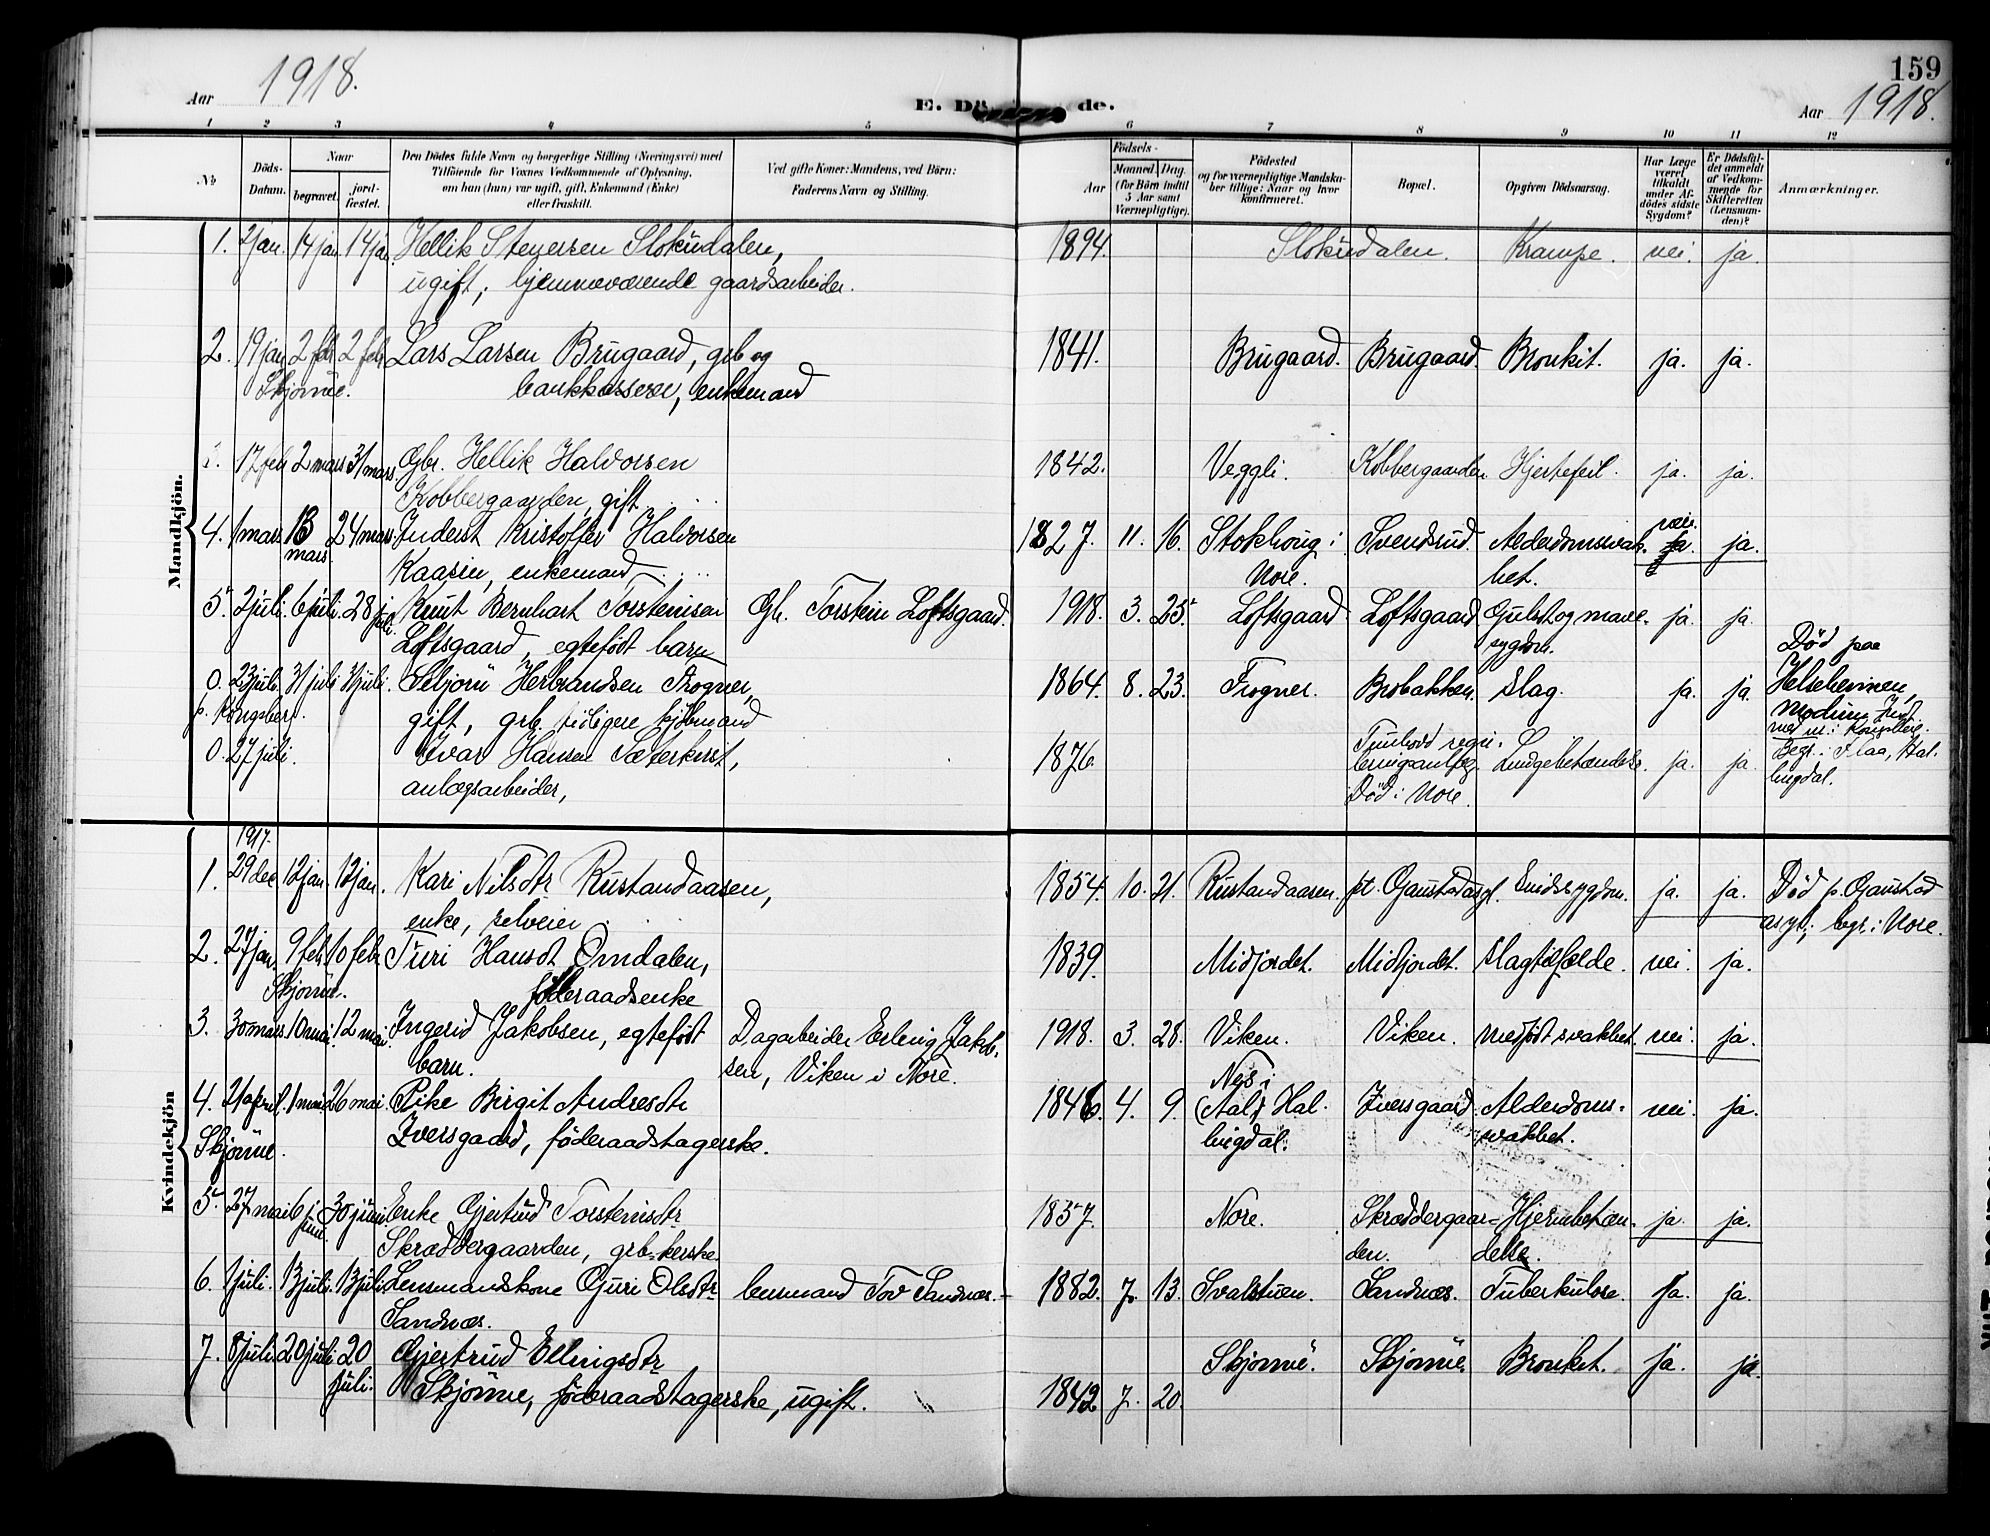 159
Aar 1918.
E. Dö de.
Aar 1918.
1 2 3 4 5 6 7 8 9 10 11 12
No
Döds-Datum.
Naar
begravet.
jord-fæstet.
Den Dödes fulde Navn og borgerlige Stilling (Næringsvei) med
Tilföiende for Voxnes Vedkommende af Oplysning,
om han (hun) var ugift, gift, Enkemand (Enke)
eller fraskilt.
Ved gifte Koner: Mandens, ved Börn:
Faderens Navn og Stilling.
Födsels-
Aar
Maaned. Dag.
(for Börn indtil
5 Aar samt
Værnepligtige).
Födested
og for værnepligtige Mandska-
ber tillige: Naar og hvor
konfirmeret.
Bopæl.
Opgiven Dödsaarsag.
Har Læge
været
tilkaldt
under Af-
dödes sidste
Sygdom?
Er Dödsfal-
det anmeldt
af Vedkom-
mende for
Skifteretten
(Lensman-
den)?
Anmærkninger.
Mandkjön.
1. 2 jan. 14 jan 14 jan. Hellik Stenersen Slokudalen, 1894. Slokudalen. Krampe. nei. ja.
ugift, hjemmeværende gaardsarbeider.
2. 19 jan 2 feb 2 feb Lars Larsen Brugaard, grb og 1841. Brugaard. Brugaard. Bronkit. ja. ja.
Skjönne. bankkasserer, enkemand
17 feb 2 mars 31 mars Gbr. Hellik Halvorsen 1842. Veggli. Kobbergaarden Hjertefeil. ja. ja.
Kobbergaarden, gift
4. 1 mars 13 mars 24 mars. Inderst Kristoffer Halvorsen 1827. 11. 16. Stokhoug i Svendsrud. Alderdomssvak- nei. ja. ja.
Kaasin, enkemand Nore. het.
5. 2 juli. 6 juli. 28 juli. Knut Bernhart Torsteinsen Gb. Torstein Loftsgaard. 1918. 3. 25. Loftsgaard Loftsgaard Gulsot og mave- ja. ja.
Loftsgaard, egtefödt barn sygdom. Död paa
0. 23 juli. 31 juli 31 juli. Herbrandsen Frogner, 1864. 8. 23. Frogner. Brobakken. Slag. ja. ja. Helseheimen,
p. Kongsberg. gift, grb. tidligere kjöbmand Modum
0. 27 juli. Ivar Hansen Sæterkvist, 1876. Tunhovd regu- Lungebetændelse. ja. ja. Begr. i Flaa, Hal-
anlægsarbeider, Död i Nore. lingdal.
Kvindekjön
1917.
1. 29 dec 12 jan. 12 jan. Kari Nilsdtr Rustandaasen, 1854. 10. 21. Rustandaasen. pt. Gaustad asyl. Sindssygdom. ja. ja. Död p. Gaustad
enke, selveier asyl, begr. i Nore.
2. 27 jan. 9 feb. 10 febr. Turi Hansdt Omdalen, 1839. Midjordet. Midtjordet. Slagtilfælde. nei. ja.
Skjönne. föderaadsenke
3. 30 mars. 10 mai. 12 mai. Ingerid Jakobsen, egtefödt Dagarbeider Erling Jakob- 1918. 3. 28. Viken. Viken. Medfödt svakhet. nei. ja.
barn. sen, Viken i Nore. Nes i
4. 21 april. 1 mai 26 mai Pike Birgit Andresdtr 1846. 4. 9. (Aal) Hal- Iversgaard. Alderdoms- nei. ja.
Skjönne. Iversgaard, föderaadstagerske. lingdal. svakhet.
5. 27 mai 6 juni 30 juni Enke Gjertrud Torsteinsdtr 1857. Nore. Skræddergaar- Hjernebetæn- ja. ja.
Skræddergaarden, grb-kerske den. delse.
6. 1 juli. 13 juli. 13 juli. Lensmandskone Guri Olsdtr lensmand Tov Sandnæs. 1882. 7. 13. Svalstuen. Sandnæs. Tuberkulose. Ja. ja.
Sandnæs.
7. 8 juli 20 juli. 20 juli. Gjertrud Ellingsdtr Skjönne. Skjönne. Bronket. ja. ja.
Skjönne, föderaadstagerske, ugift. 1842 7. 20.